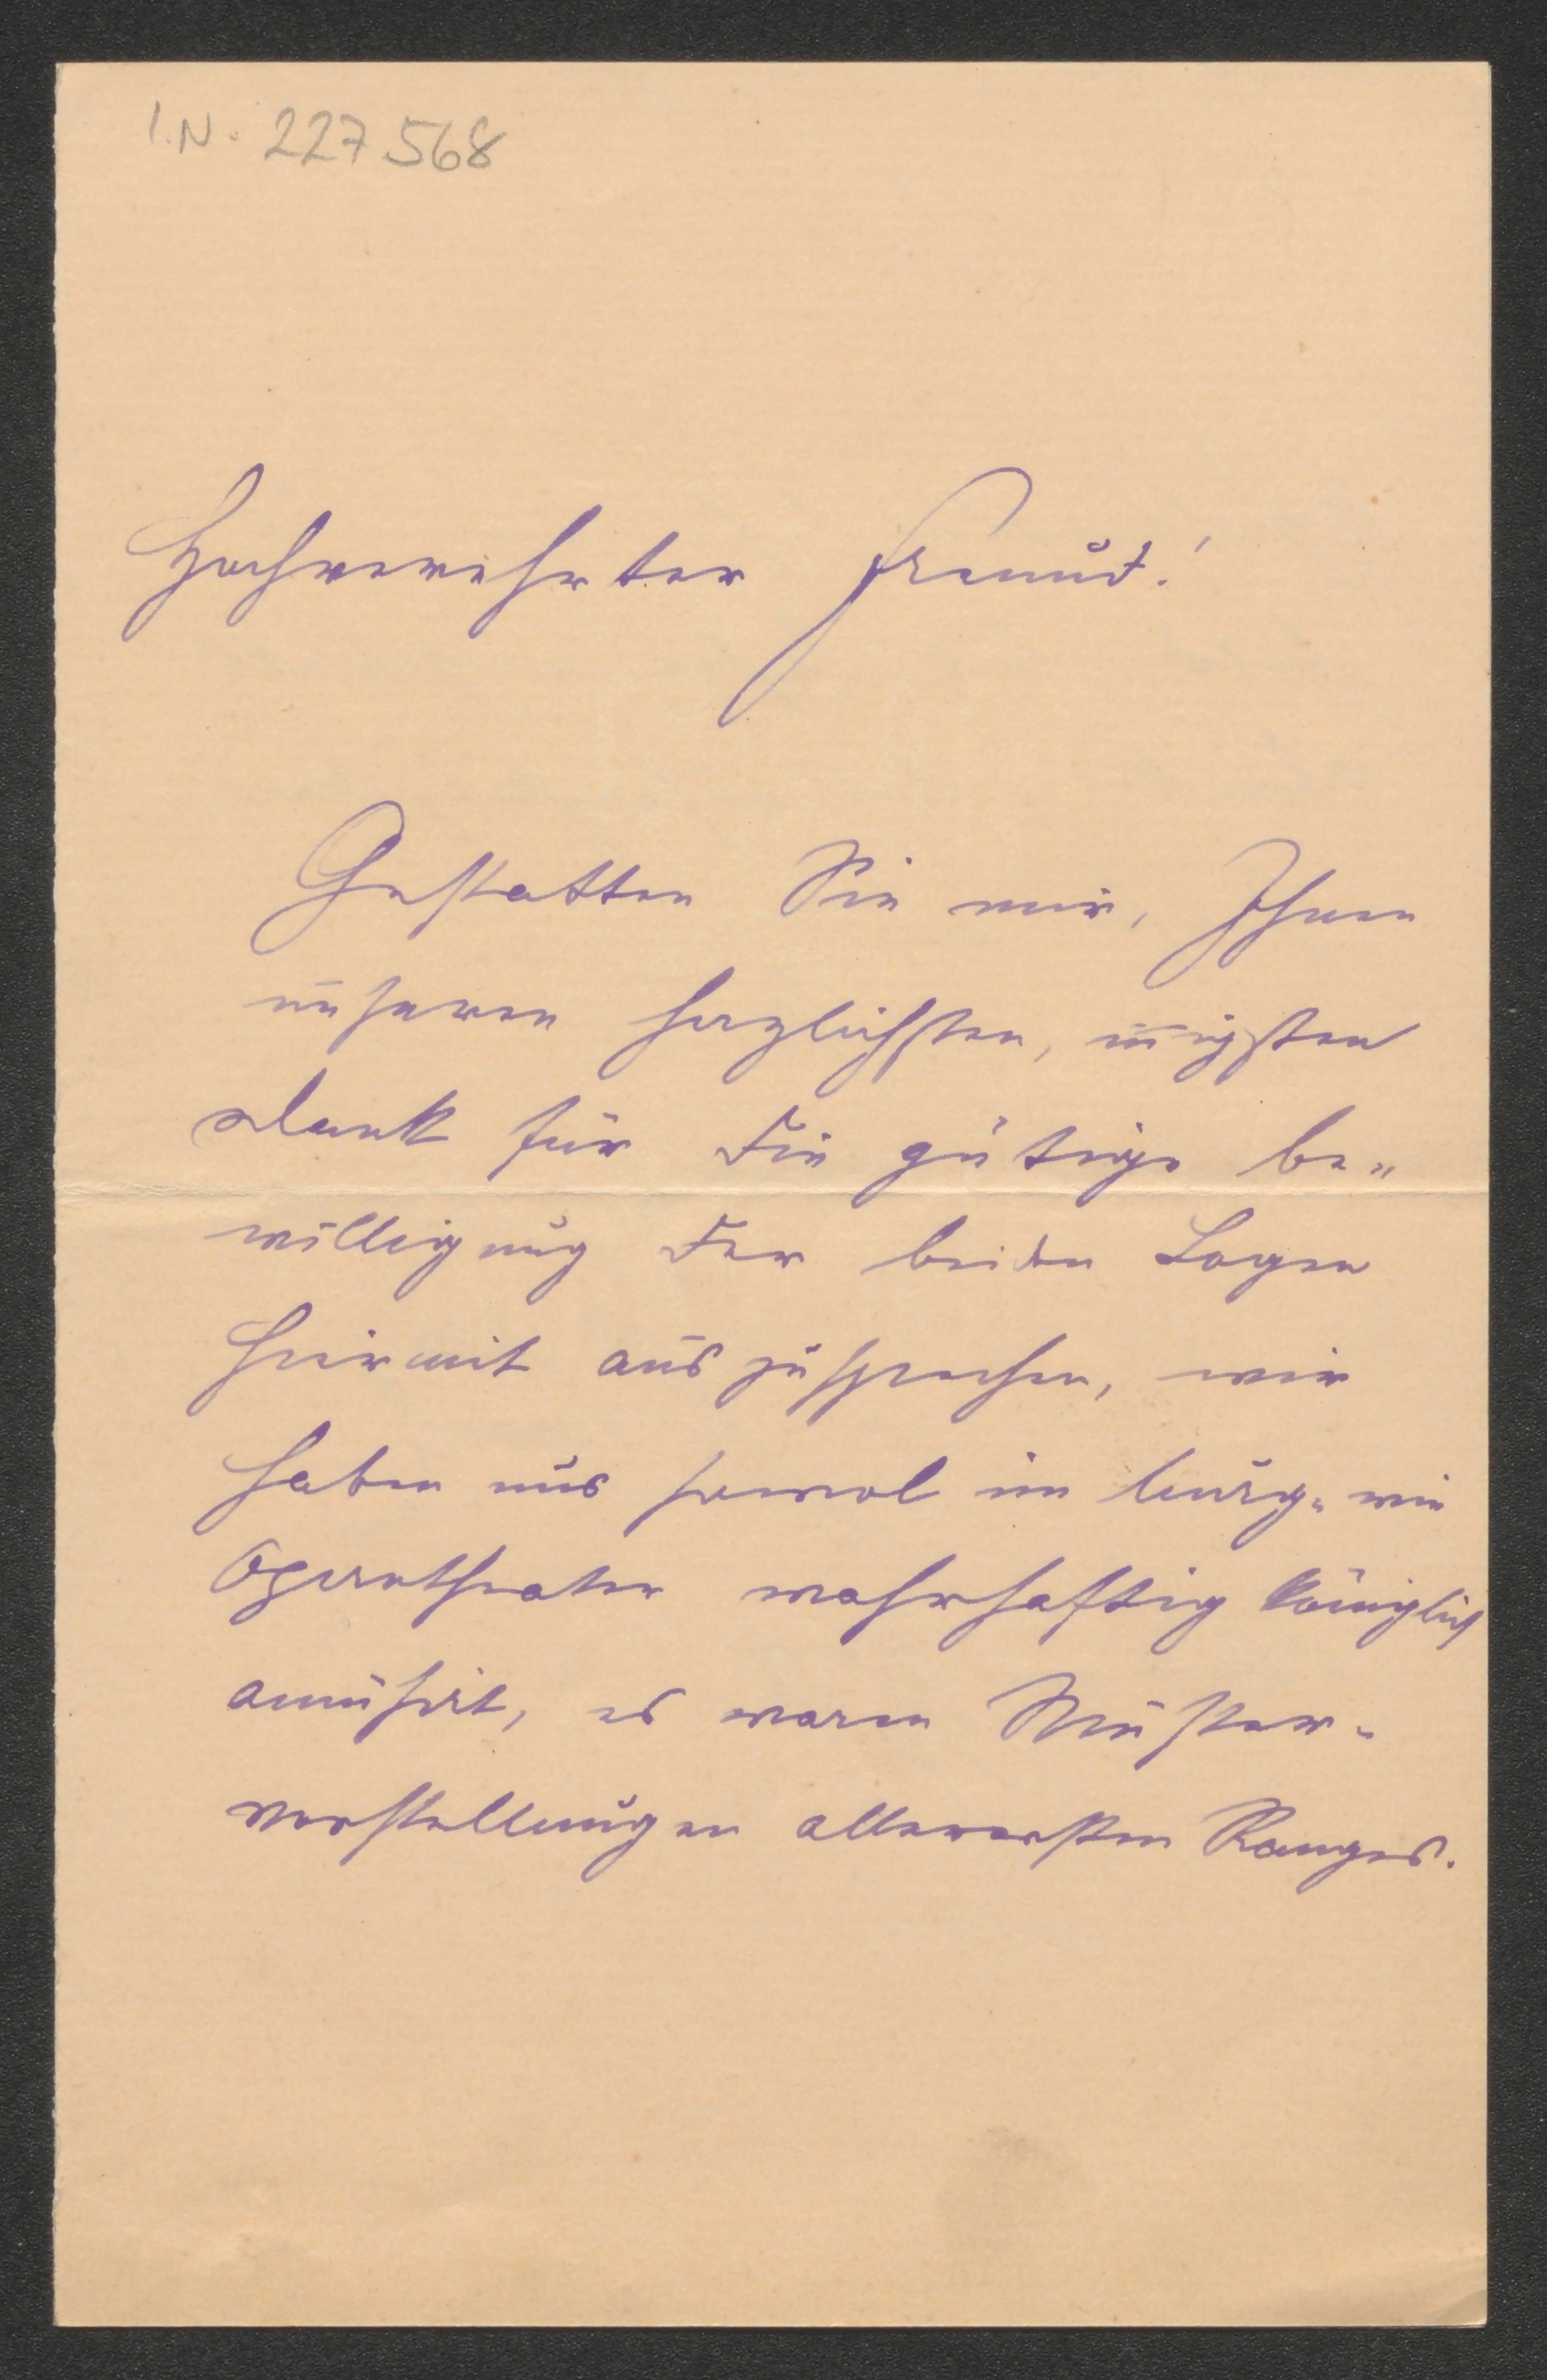 I.N. 227568
Hochverehrter Freund!
Gestatten Sie mir, Ihnen
unseren herzlichsten, innigsten
Dank für die gütige be„
willigung der beiden Logen
hiermit auszusprechen, wir
haben uns sowol im burg- wie
Operntheater wahrhaftig königlich
amüsirt, es waren Muster-
vorstellungen allerersten Ranges.